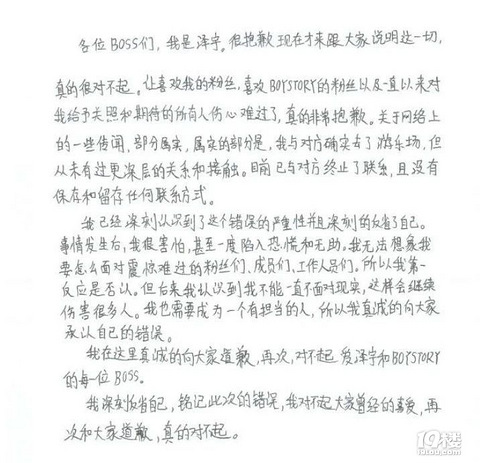 各位BOSS们，我是泽宇。很抱歉现在才来跟大家说明这一切，
真的很对不起。让喜欢我的粉丝，喜欢BOYSTORY的粉丝以及一直以来对
我给予关照和期待的所有人伤心难过了，真的非常抱歉。关于网络上
的一些传闻，部分属实，属实的部分是，我与对方确实去了游乐场，但
从未有过更深层的关系和接触。目前已与对方终止了联系，且没有
保存和留存任何联系方式。
我已经深刻认识到了这个错误的严重性并且深刻的反省了自己。
事情发生后，我很害怕，甚至一度陷入恐慌和无助。我无法想象我
要怎么面对震惊难过的粉丝们、成员们、工作人员们。所以我第一
反应是否认。但后来我认识到我不能一直不面对现实，这样会继续
伤害很多人。我也需要成为一个有担当的人，所以我真诚的向大家
承认自己的错误。
我在这里真诚的向大家道歉，再次，对不起爱泽宇和BOYSTORY
的每一位BOSS。
我深刻反省自己，铭记此次的错误，我对不起大家曾经的喜爱，再
次和大家道歉，真的对不起。
19楼
19lou.com